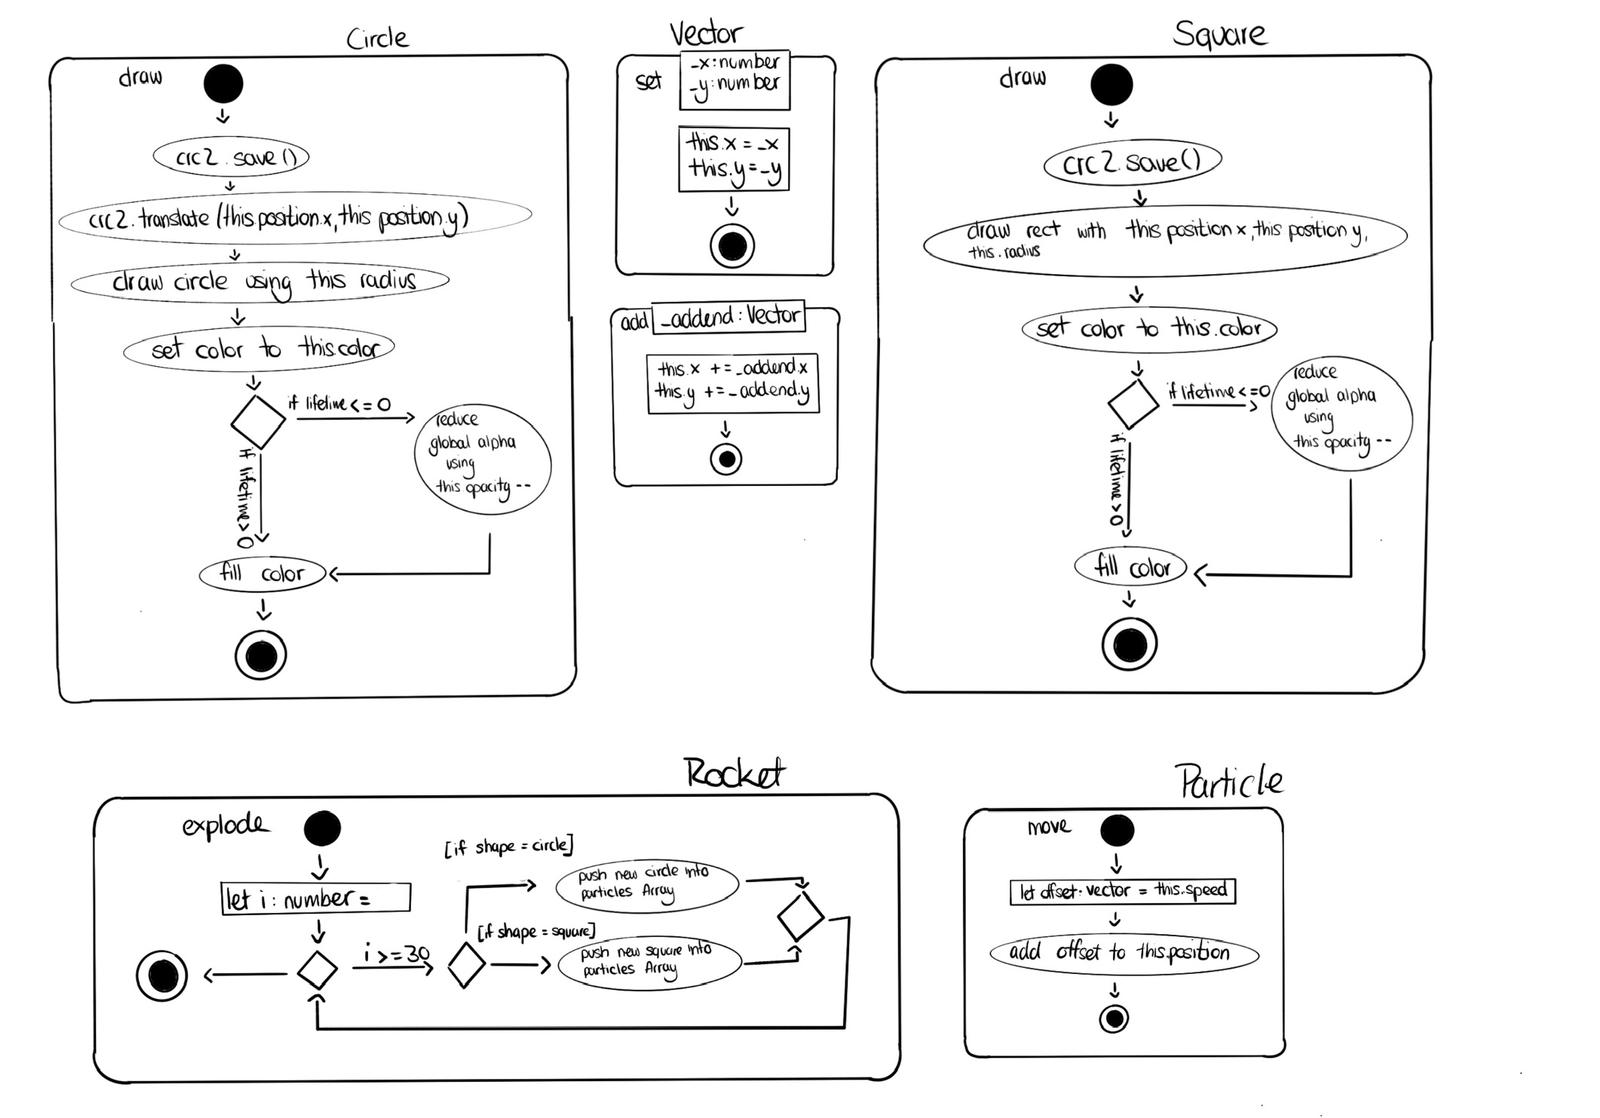 Circle
draw
crc2.save()
crc2.translate(this position.x, this position.y)
draw circle using this radius
set color to this.color
if lifetime <= 0
reduce
global alpha
using
this opacity --
if lifetime > 0
fill color
Vector
set
_x: number
_y: number
this.x = _x
this.y = _y
add _addend: Vector
this.x += _addend.x
this.y += _addend.y
Square
draw
crc2.save()
draw rect with this position x, this position y,
this.radius
set color to this.color
if lifetime <= 0
reduce
global alpha
using
this opacity --
if lifetime > 0
fill color
Rocket
explode
let i: number =
i >= 30
[if shape = circle]
push new circle into
particles Array
[if shape = square]
push new square into
particles Array
Particle
move
let offset: vector = this.speed
add offset to this.position